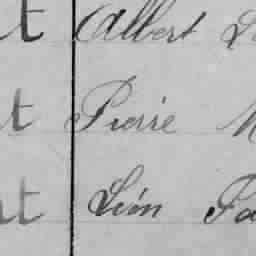 t Albert
t Pierre M
t Léon Fa